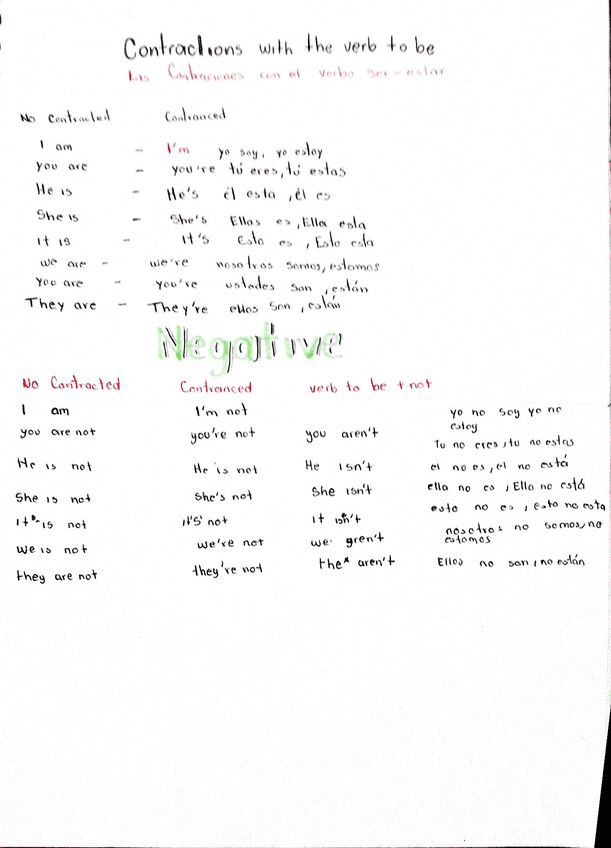 Contractions with the verb to be
Las Contraciones con el verbo ser-estar
No Contracted Contranced
I am - I'm yo soy, yo estoy
you are - you're tú eres, tú estas
He is - He's él esta, él es
She is - She's Ellas es, Ella esta
it is - it's Esto es, Esto esta
we are - we're nosotros somos, estamos
you are - you're ustedes son, están
They are - They're ellos son, están
Negative
No Contracted Contranced verb to be + not
I am I'm not yo no soy yo no
estoy
you are not you're not you aren't Tu no eres, tu no estas
He is not He is not He isn't el no es, el no está
She is not She's not She isn't ella no es, Ella no está
it is not it's not it isn't esto no es, esto no esta
we is not we're not we gren't nosotros no somos, no
estamos
they are not they're not the* aren't Ellos no son, no están